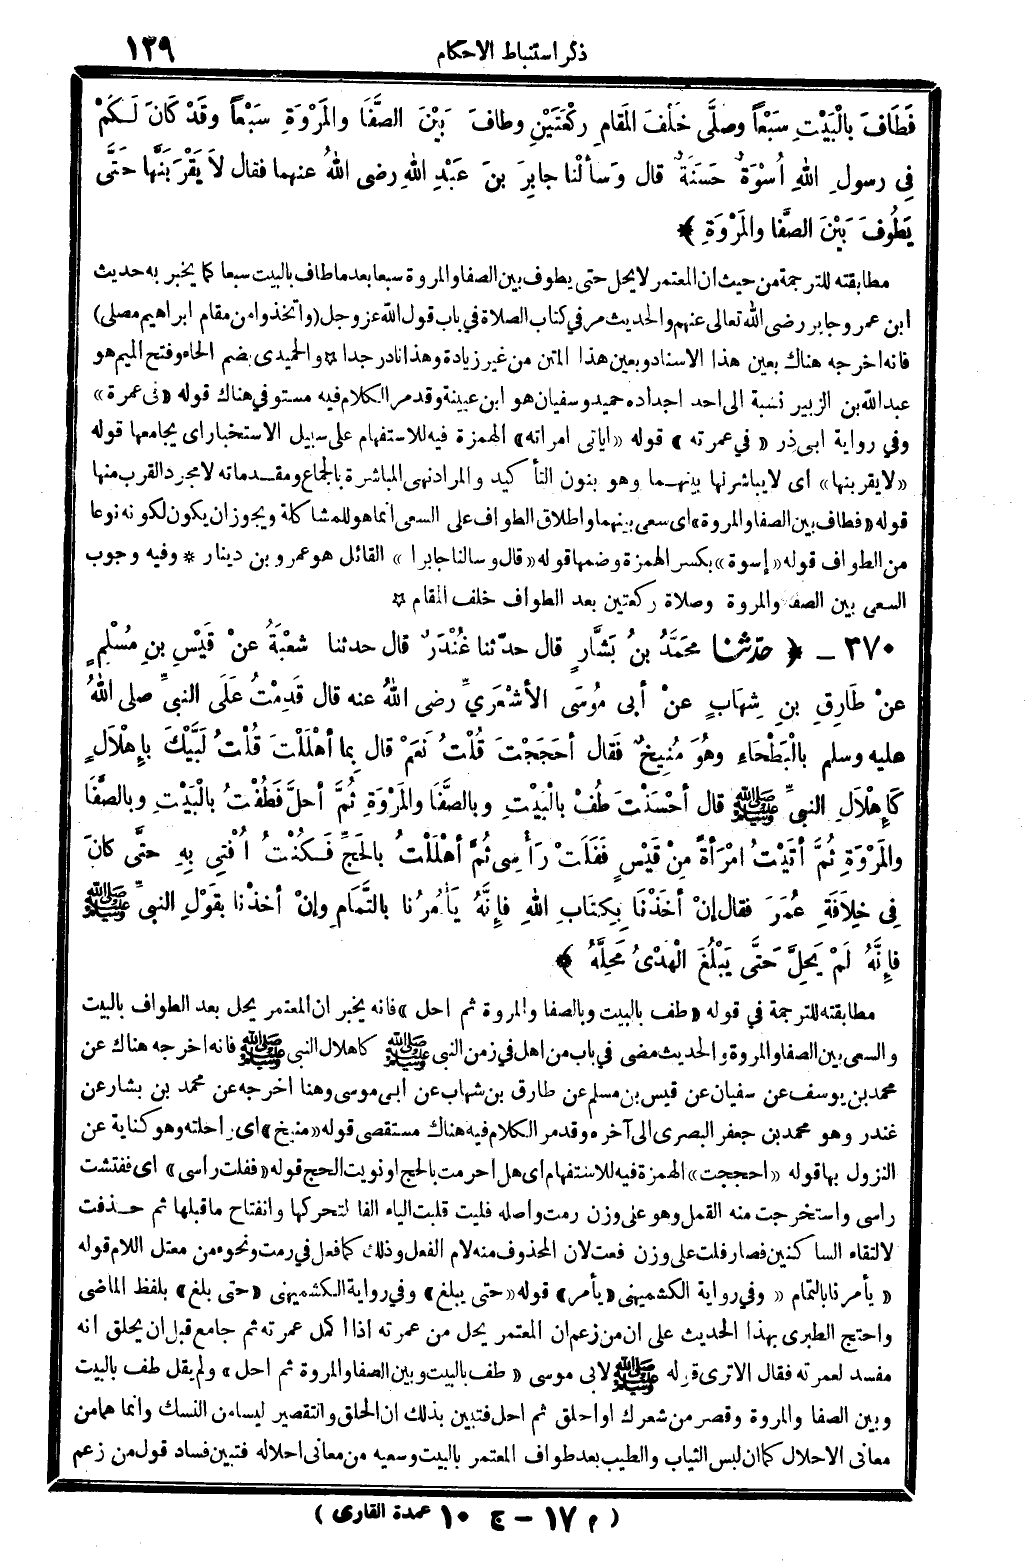 ذكر استنباط الاحكام
١٢٩
فَطَافَ بِالْبَيْتِ سَبْعاً وصلَّى خَلْفَ المَقامِ رَكْعَتَيْنِ وطافَ بَيْنَ الصَّفَا والمَرْوَةِ سَبْعاً وقَدْ كَانَ لَـكُمْ
فِي رسولِ اللهِ أُسْوَةٌ حَسَنَةٌ قال وَسَألْنا جابِرَ بنَ عَبْدِ اللهِ رضى اللهُ عنهما فقال لاَ يَقْرَبَنَّها حَتَّى
يَطُوفَ بَيْنَ الصَّفا والمَرْوَةِ ﴾
مطابقته للترجمة من حيث أن المعتمر لا يحل حتى يطوف بين الصفا والمروة سبعا بعد ما طاف بالبيت سبعا كما يخبر به حديث
ابن عمر وجابر رضى الله تعالى عنهم والحديث مر في كتاب الصلاة في باب قول الله عز وجل (واتخذوا من مقام ابراهيم مصلى)
فانه اخرجه هناك بعين هذا الاسناد وبعين هذا المتن من غير زيادة وهذا نادر جدا * والحميدى بضم الحاء وفتح الميم هو
عبدالله بن الزبير نسبة الى احد اجداده حميد وسفيان هو ابن عيينة وقد مر الكلام فيه مستوفي هناك قوله «في عمرة»
وفي رواية ابى ذر «في عمرته» قوله «اياتى امراته» الهمزة فيه للاستفهام على سبيل الاستخبار اى يجامعها قوله
«لا يقربنها» اى لا يباشرنها بينهــما وهو بنون التأكيد والمراد نهى المباشرة بالجماع ومقــدماته لا مجرد القرب منها
قوله «فطاف بين الصفا والمروة» اى سعى بينهما واطلاق الطواف على السعى انما هو للمشاكلة ويجوز ان يكون لكونه نوعا
من الطواف قوله «إسوة» بكسر الهمزة وضمها قوله «قال وسالنا جابرا» القائل هو عمرو بن دينار * وفيه وجوب
السعى بين الصفا والمروة وصلاة ركعتين بعد الطواف خلف المقام *
٣٧٠ ــ ﴿ حدّثنا محَمَّدُ بنُ بَشَّارٍ قال حدّثنا غُنْدَرٌ قال حدثنا شعْبَةُ عنْ قَيْسِ بنِ مُسْلِمٍ
عنْ طَارِقِ بنِ شِهَابٍ عنْ أبى مُوسَى الأشْعَرِيِّ رضى اللهُ عنه قال قَدِمْتُ عَلَى النبيِّ صلى اللهُ
عليه وسلم بالْبَطْحَاءِ وهُوَ مُنِيخٌ فَقال أحَجَجْتَ قُلْتُ نَعَمْ قال بِما أهْلَلْتَ قُلْتُ لَبَّيْكَ بإِهْلاَلٍ
كَإهْلاَلِ النبيِّ ﷺ قال أحْسَنْتَ طُفْ بالْبَيْتِ وبالصَّفَا والمَرْوَةِ ثُمَّ أحلَّ فَطُفْتُ بالْبَيْتِ وبالصفَّا
والمَرْوَةِ ثُمَّ أتَيْتُ امْرَأةً مِنْ قَيْسٍ فَفَلَتْ رَأسِى ثُمَّ أهْلَلْتُ بالحَجِّ فَـكُنْتُ أُفْتِي بِهِ حتَّى كانَ
فِي خِلاَفَةِ عُمَرَ فقال إنْ أخَذْنَا بِكِتَابِ اللهِ فإنَّهُ يَأمُرُنا بالتَّمَامِ وإنْ أخذْنا بقَوْلِ النبيِّ ﷺ
فإنَّهُ لَمْ يَحِلَّ حَتَّى يَبْلُغَ الْهَدْىُ مَحِلَّهُ ﴾
مطابقته للترجمة في قوله «طف بالبيت وبالصفا والمروة ثم احل» فانه يخبر ان المعتمر يحل بعد الطواف بالبيت
والسعى بين الصفا والمروة والحديث مضى في باب من اهل في زمن النبى ﷺ كاهلال النبى ﷺ فانه اخرجه هناك عن
محمد بن يوسف عن سفيان عن قيس بن مسلم عن طارق بن شهاب عن ابى موسى وهنا اخرجه عن محمد بن بشار عن
غندر وهو محمد بن جعفر البصرى الى آخره وقد مر الكلام فيه هناك مستقصى قوله «منيخ» اى راحلته وهو كناية عن
النزول بها قوله «احججت» الهمزة فيه للاستفهام اى هل احرمت بالحج او نويت الحج قوله «ففلت رأسى» اى ففتشت
رأسى واستخرجت منه القمل وهو على وزن رمت واصله فليت قلبت الياء الفا لتحركها وانفتاح ما قبلها ثم حــذفت
لالتقاء الساكنين فصار فلت على وزن فعت لان المحذوف منه لام الفعل وذلك كما فعل في رمت ونحوه من معتل اللام قوله
«يأمرنا بالتمام» وفي رواية الكشميهنى «يأمر» قوله «حتى يبلغ» وفي رواية الكشميهنى «حتى بلغ» بلفظ الماضى
واحتج الطبرى بهذا الحديث على ان من زعم ان المعتمر يحل من عمرته اذا اكمل عمرته ثم جامع قبل ان يحلق انه
مفسد لعمرته فقال الا ترى قوله ﷺ لابى موسى «طف بالبيت وبين الصفا والمروة ثم احل» ولم يقل طف بالبيت
وبين الصفا والمروة وقصر من شعرك او احلق ثم احل فتبين بذلك ان الحلق والتقصير ليسا من النسك وانما هما من
معانى الاحلال كما ان لبس الثياب والطيب بعد طواف المعتمر بالبيت وسعيه من معانى احلاله فتبين فساد قول من زعم
( م ١٧ – ج ١٠ عمدة القارى )